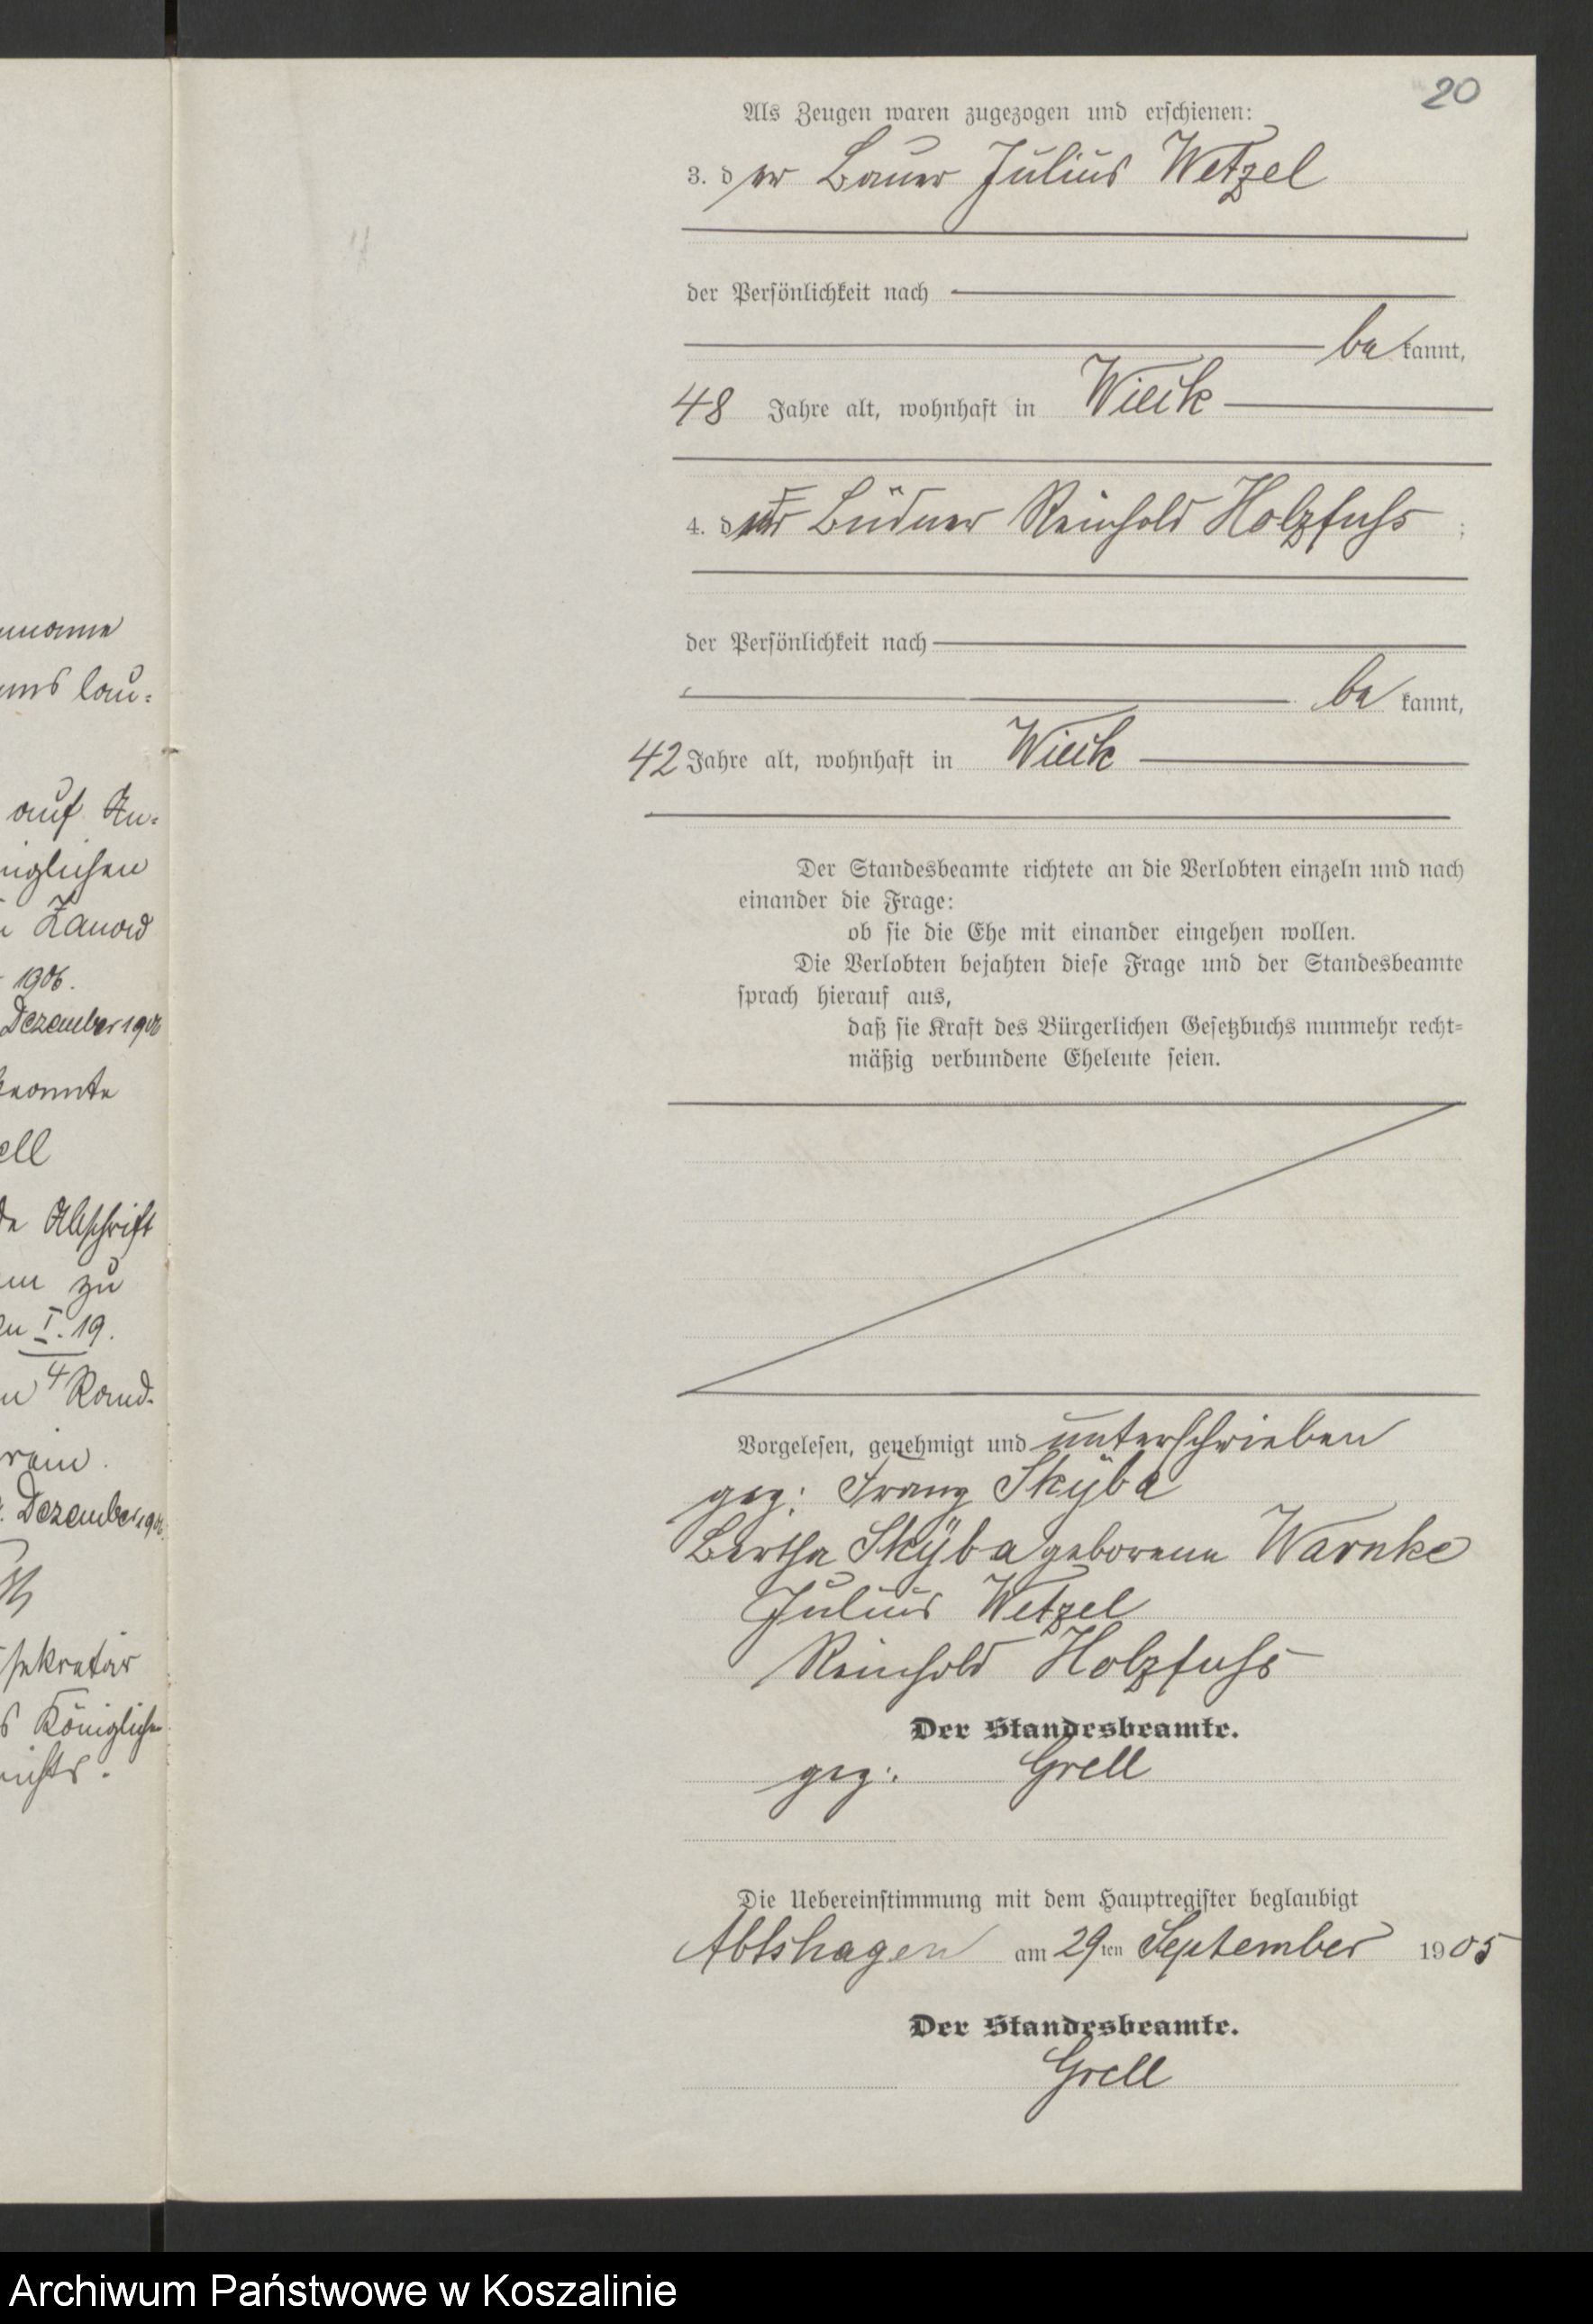 unß lau:
auf An:
niglichen
Zanow
1906.
Dezember 1906
beamte
ell
Abschrift
zu
I. 19.
4 Rand-
rein.
Dezember 1906.
sekretär
s Königlichen
richts.
20
Als Zeugen waren zugezogen und erschienen:
3. der Bauer Julius Wetzel
der Persönlichkeit nach
bekannt,
48 Jahre alt, wohnhaft in Wieck
4. der Büdner Reinhold Holzfuß ;
der Persönlichkeit nach
bekannt,
42 Jahre alt, wohnhaft in Wieck
Der Standesbeamte richtete an die Verlobten einzeln und nach
einander die Frage:
ob sie die Ehe mit einander eingehen wollen.
Die Verlobten bejahten diese Frage und der Standesbeamte
sprach hierauf aus,
daß sie Kraft des Bürgerlichen Gesetzbuchs nunmehr recht-
mäßig verbundene Eheleute seien.
Vorgelesen, genehmigt und unterschrieben
gez: Franz Skÿba
Bertha Skÿba geborene Warnke
Julius Wetzel
Reinhold Holzfuß
Der Standesbeamte.
gez: Grell
Die Uebereinstimmung mit dem Hauptregister beglaubigt
Abtshagen am 29ten September 1905
Der Standesbeamte.
Grell
Archiwum Państwowe w Koszalinie